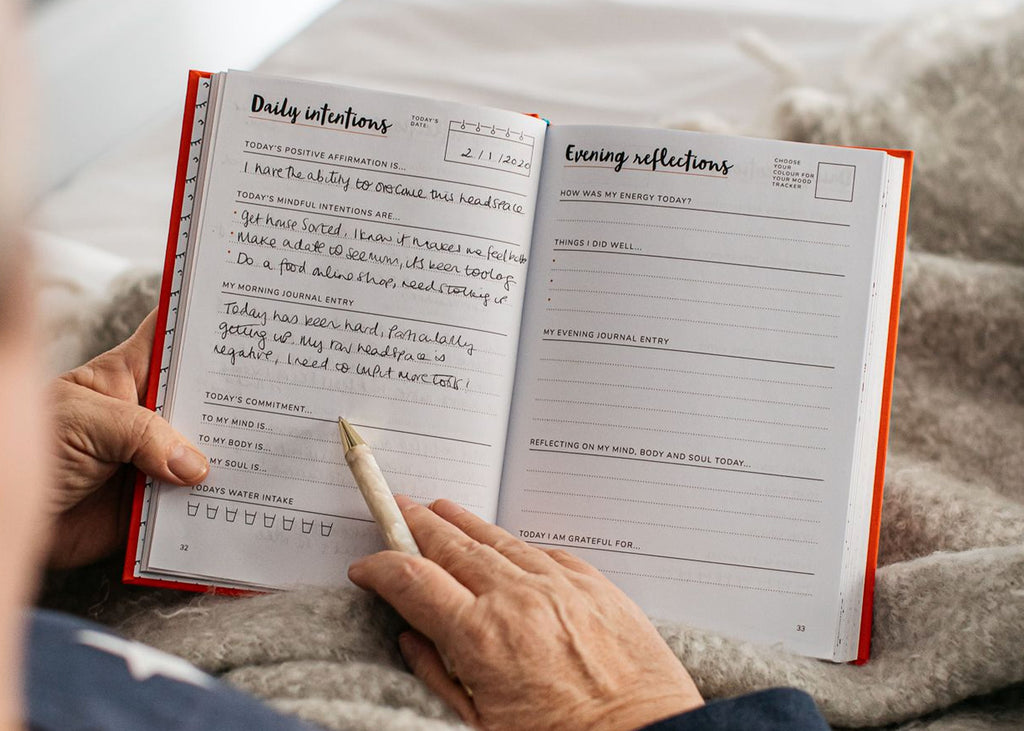 Daily intentions
TODAY'S
DATE:
2/1/2020
TODAY'S POSITIVE AFFIRMATION IS...
I have the ability to overcome this headspace
TODAY'S MINDFUL INTENTIONS ARE...
get house sorted, I know it makes me feel better
Make a date to see mum, its been too long
Do a food online shop, need stocking up
MY MORNING JOURNAL ENTRY
Today has been hard, particularly
getting up. My raw headspace is
negative, I need to input more tools!
TODAY'S COMMITMENT...
TO MY MIND IS...
TO MY BODY IS...
MY SOUL IS...
TODAYS WATER INTAKE
32
Evening reflections
CHOOSE
YOUR
COLOUR FOR
YOUR MOOD
TRACKER
HOW WAS MY ENERGY TODAY?
THINGS I DID WELL...
MY EVENING JOURNAL ENTRY
REFLECTING ON MY MIND, BODY AND SOUL TODAY...
TODAY I AM GRATEFUL FOR...
33